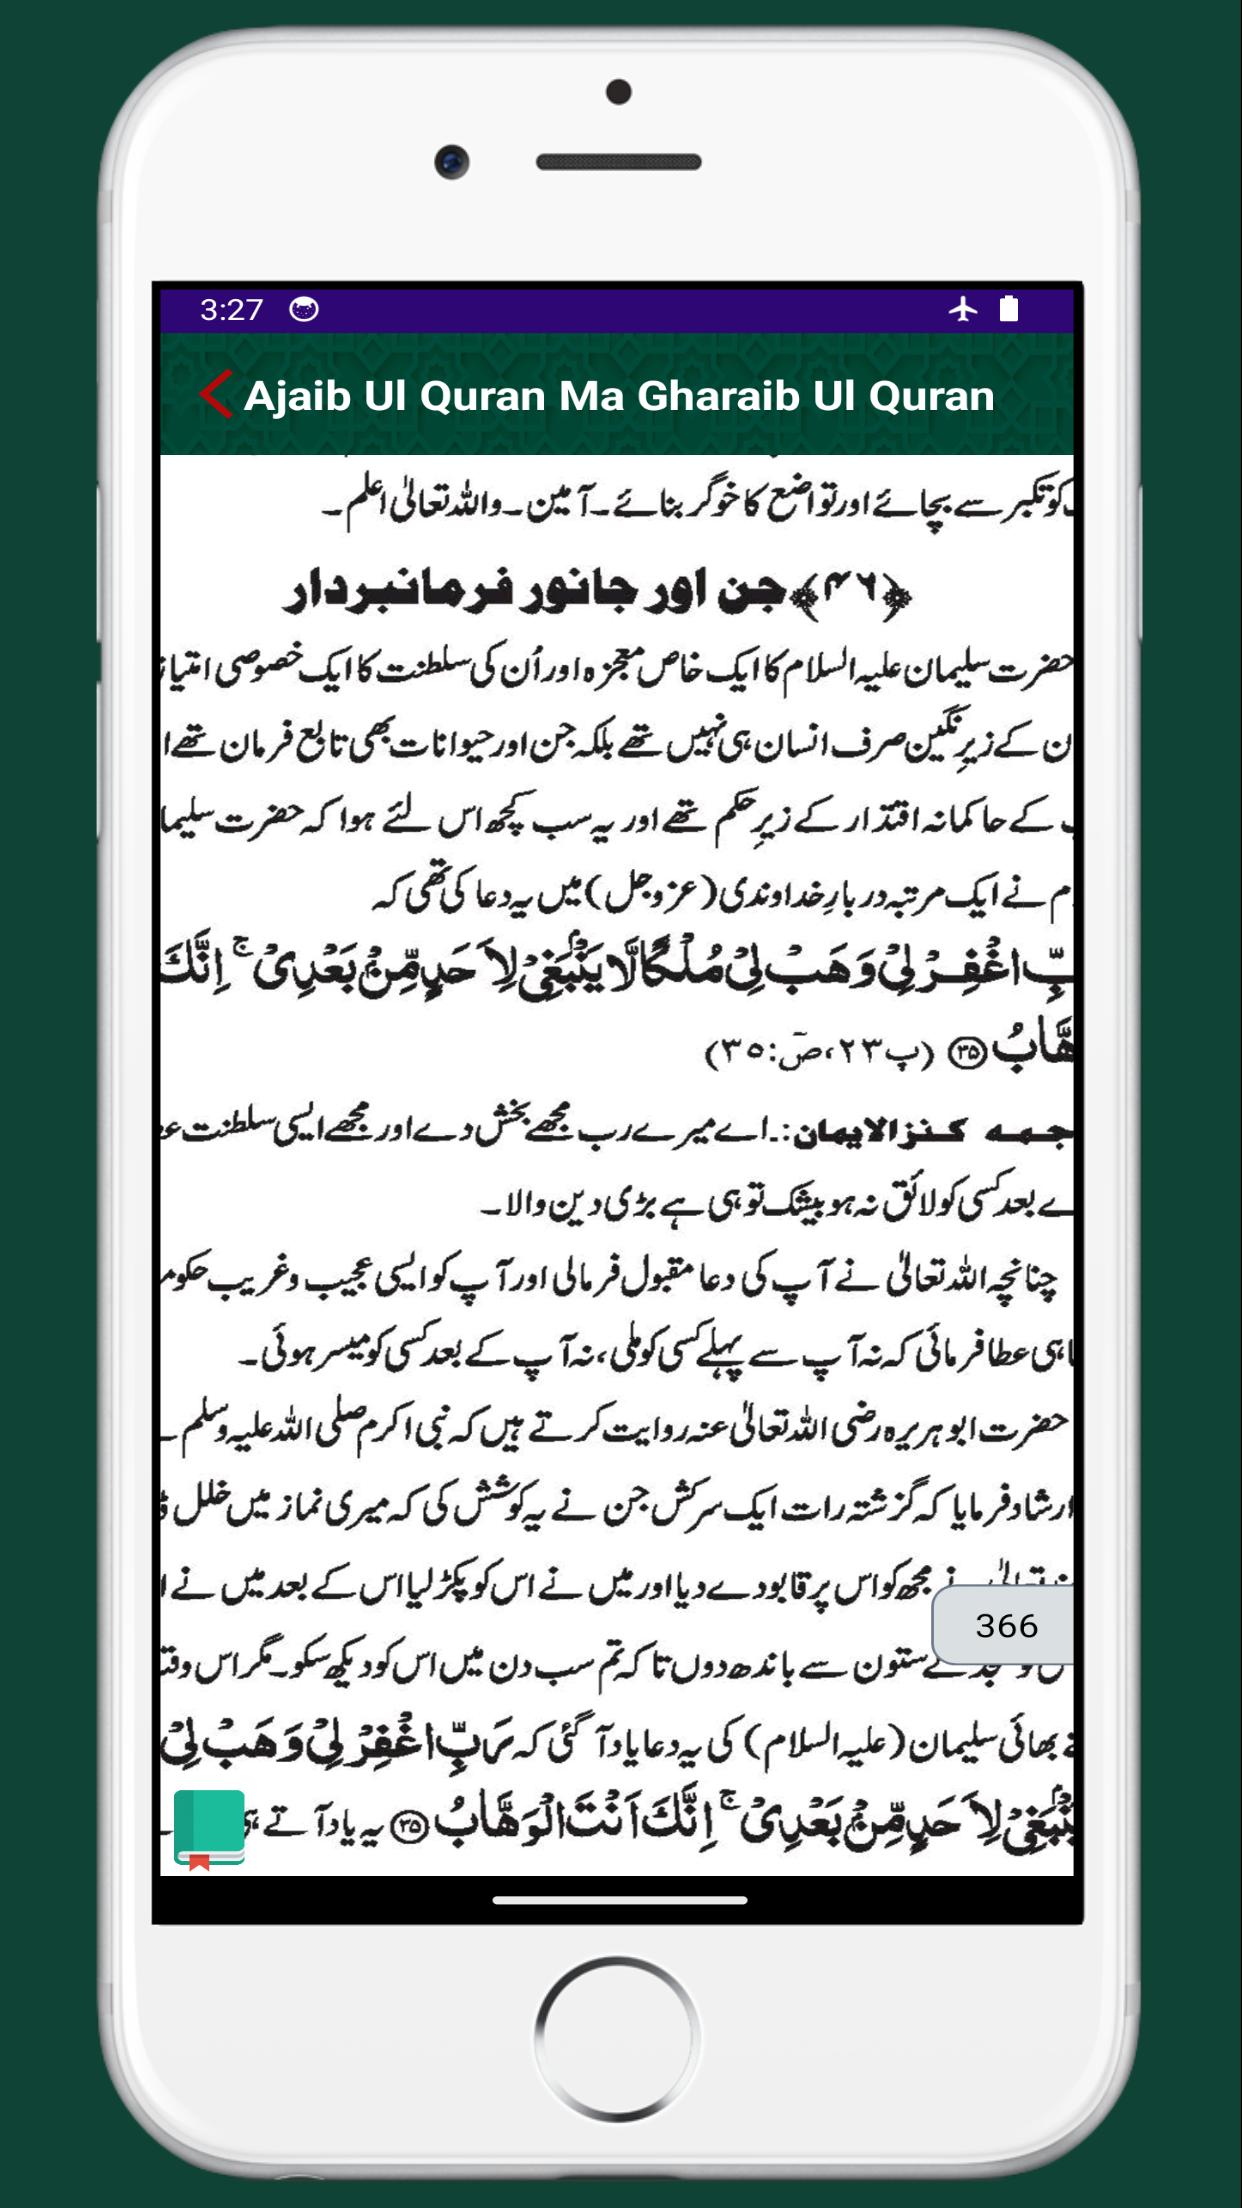 3:27
Ajaib Ul Quran Ma Gharaib Ul Quran
کو تکبر سے بچائے اور تواضع کا خوگر بنائے۔ آمین۔ واللہ تعالیٰ اعلم۔
﴿۴۶﴾ جن اور جانور فرمانبردار
حضرت سلیمان علیہ السلام کا ایک خاص معجزہ اور اُن کی سلطنت کا ایک خصوصی امتیاز
ن کے زیرِ نگین صرف انسان ہی نہیں تھے بلکہ جن اور حیوانات بھی تابع فرمان تھے ا
کے حاکمانہ اقتدار کے زیرِ حکم تھے اور یہ سب کچھ اس لئے ہوا کہ حضرت سلیما
م نے ایک مرتبہ دربارِ خداوندی (عزوجل) میں یہ دعا کی تھی کہ
بِّ اغْفِرْ لِیْ وَ هَبْ لِیْ مُلْكًا لَّا یَنْۢبَغِیْ لِاَحَدٍ مِّنْۢ بَعْدِیْ ۚ اِنَّكَ
هَّابُ ﴿۳۵﴾ (پ۲۳، صٓ:۳۵)
جمه کنزالایمان:۔ اے میرے رب مجھے بخش دے اور مجھے ایسی سلطنت عـ
ے بعد کسی کو لائق نہ ہو بیشک تو ہی ہے بڑی دین والا۔
چنانچہ اللہ تعالیٰ نے آپ کی دعا مقبول فرمالی اور آپ کو ایسی عجیب وغریب حکومـ
ہی عطا فرمائی کہ نہ آپ سے پہلے کسی کو ملی، نہ آپ کے بعد کسی کو میسر ہوئی۔
حضرت ابوہریرہ رضی اللہ تعالیٰ عنہ روایت کرتے ہیں کہ نبی اکرم صلی اللہ علیہ وسلم
ارشاد فرمایا کہ گزشتہ رات ایک سرکش جن نے یہ کوشش کی کہ میری نماز میں خلل
تعالیٰ نے مجھ کو اس پر قابو دے دیا اور میں نے اس کو پکڑ لیا اس کے بعد میں نے ا
366
ستون سے باندھ دوں تاکہ تم سب دن میں اس کو دیکھ سکو۔ مگر اس وقت
بھائی سلیمان (علیہ السلام) کی یہ دعا یاد آ گئی کہ رَبِّ اغْفِرْ لِیْ وَ هَبْ لِیْ
نْۢبَغِیْ لِاَحَدٍ مِّنْۢ بَعْدِیْ ۚ اِنَّكَ اَنْتَ الْوَهَّابُ ﴿۳۵﴾ یہ یاد آتے ہی